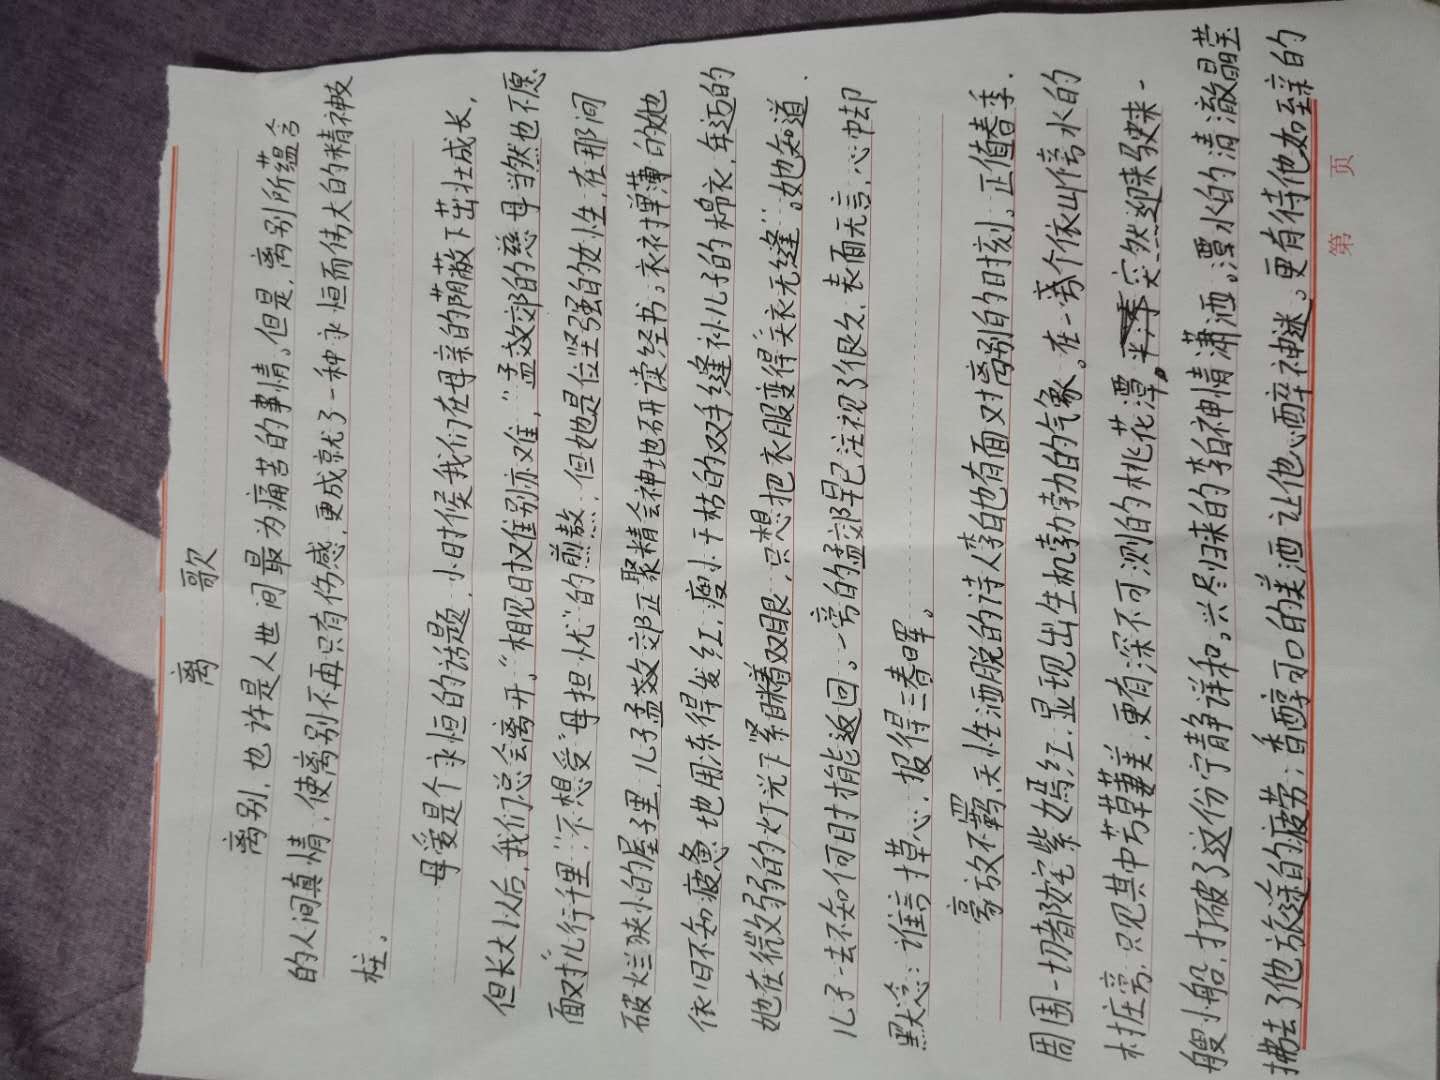 离 歌
离别,也许是人世间最为痛苦的事情。但是,离别所蕴含
的人间真情,使离别不再只有伤感,更成就了一种永恒而伟大的精神支
柱。
母爱是个永恒的话题,小时候我们在母亲的荫蔽下茁壮成长,
但长大以后,我们总会离开。“相见时难别亦难,”孟郊的慈母当然也不愿
面对“儿行千里”,不想受“母担忧”的煎熬,但她是位坚强的女性,在那间
破烂狭小的屋子里,儿子孟郊正聚精会神地研读经书。衣衬单薄的她
依旧不知疲惫地用冻得发红,瘦小干枯的双手缝补儿子的棉衣,年迈的
她在微弱的灯光下紧眯着双眼,只想把衣服变得“天衣无缝”。她知道,
儿子一去不知何时才能返回。一旁的孟郊早已注视了很久,表面无言,心中却
默念:谁言寸草心,报得三春晖。
豪放不羁、天性洒脱的诗人李白也有面对离别的时刻。正值春季,
周围一切都姹紫嫣红,显现出生机勃勃的气象。在一旁个依山傍水的
村庄旁,只见其中芳草萋美,更有深不可测的桃花潭。突然迎来驶来一
艘小船,打破了这份宁静详和。兴尽归来的李白神情潇洒。潭水的清澈晶莹
拂去了他旅途的疲劳;香醇可口的美酒让他心醉神迷。更有待他如亲的
第 页